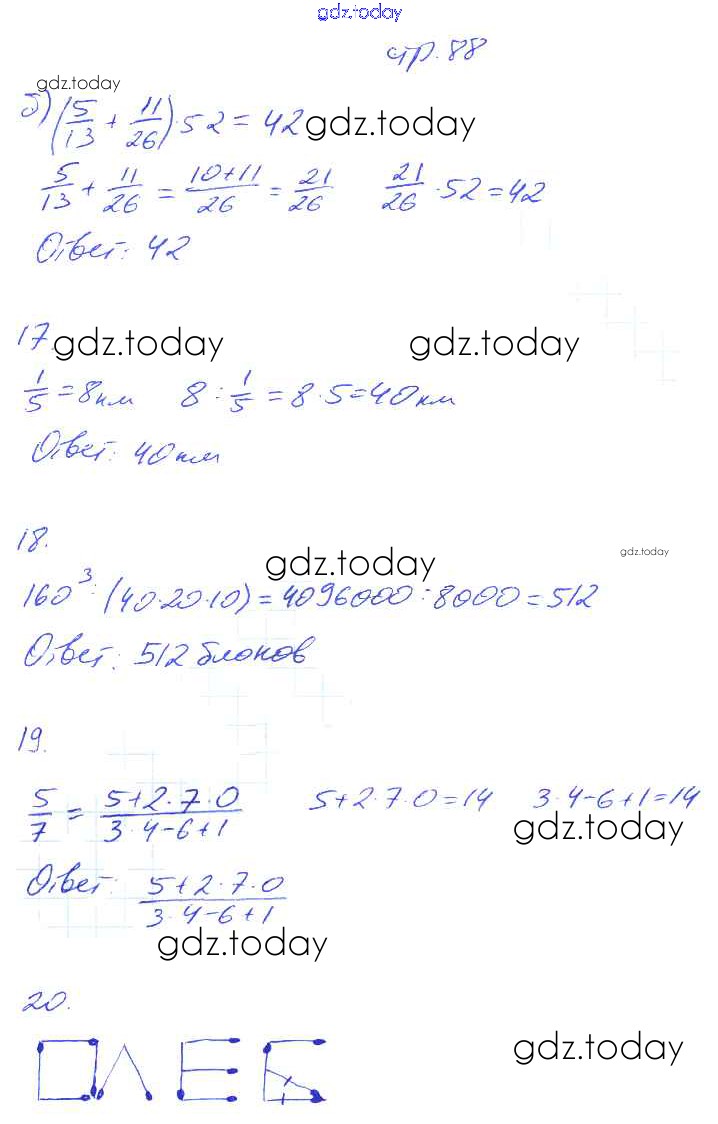 gdz.today
стр. 88
gdz.today
б) (5/13 + 11/26) · 52 = 42 gdz.today
5/13 + 11/26 = (10+11)/26 = 21/26   21/26 · 52 = 42
Ответ: 42
17. gdz.today gdz.today
1/5 = 8 км   8 : 1/5 = 8 · 5 = 40 км
Ответ: 40 км
18.
gdz.today gdz.today
160³ : (40·20·10) = 4096000 : 8000 = 512
Ответ: 512 блоков
19.
5/7 = (5+2·7·0)/(3·4−6+1)   5+2·7·0=14   3·4−6+1=14
gdz.today
Ответ: (5+2·7·0)/(3·4−6+1)
gdz.today
20.
О Л Е Б gdz.today